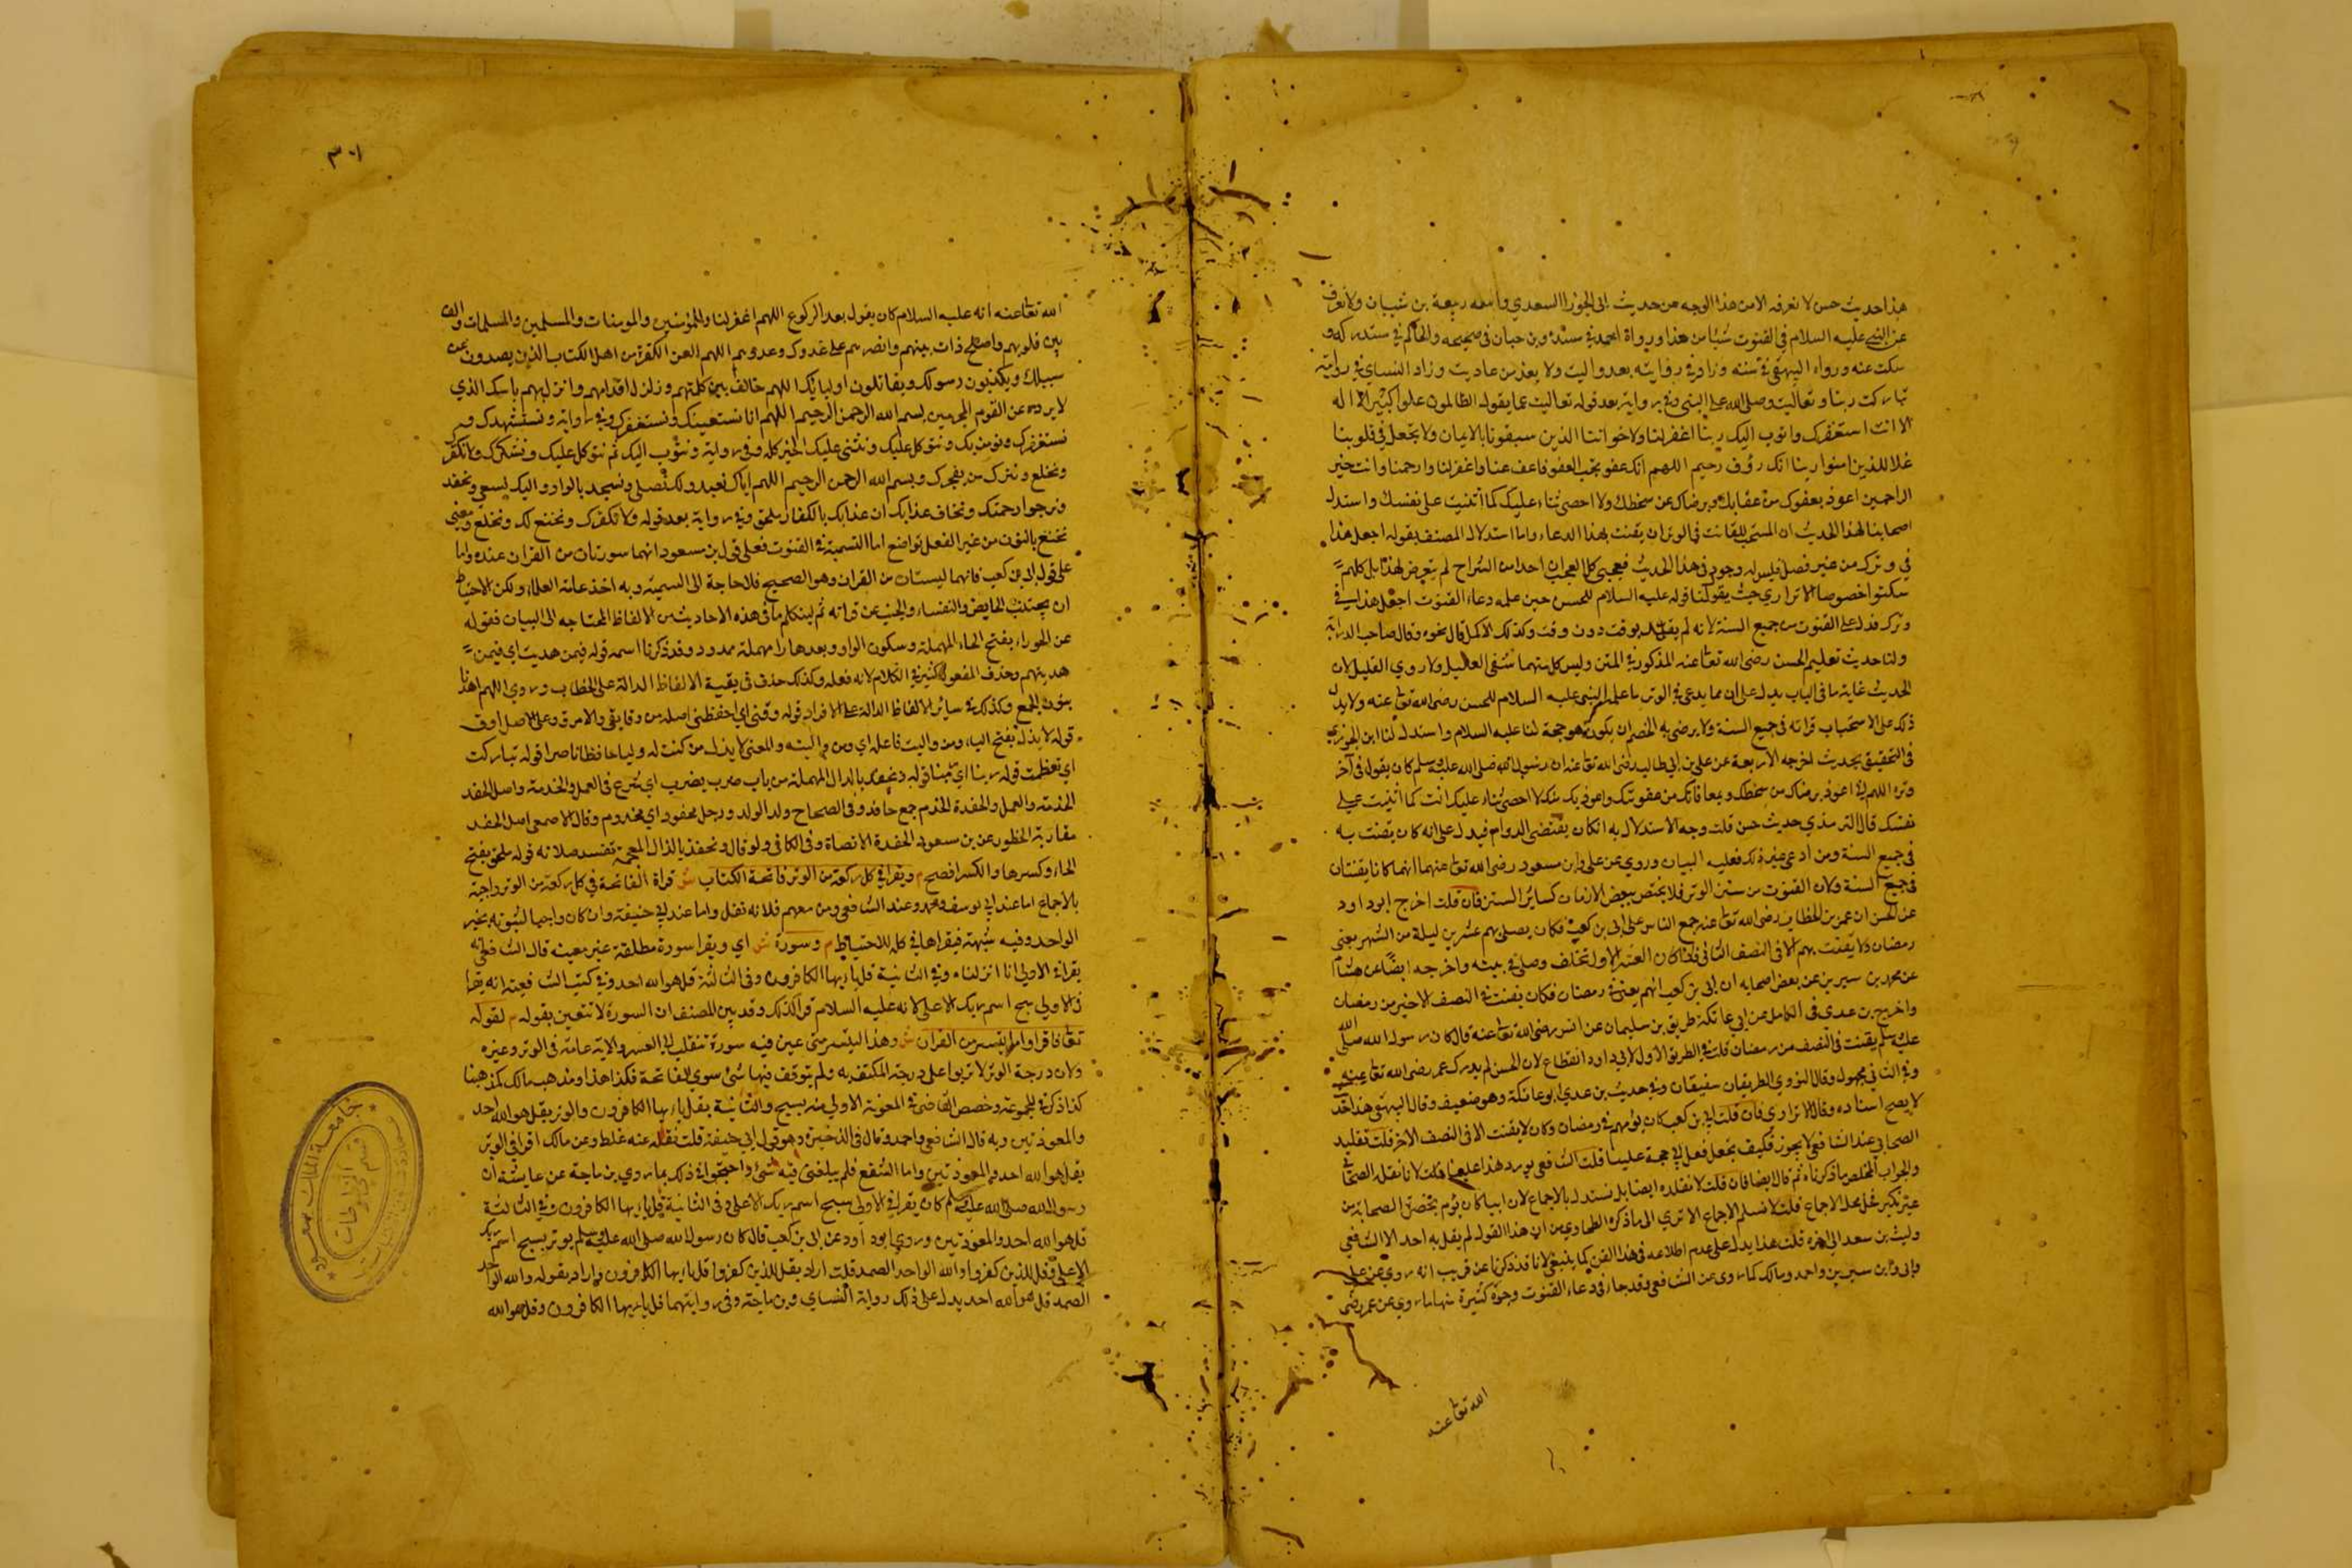 هذا حديث حسن لا نعرفه الا من هذا الوجه من حديث ابى الحوراء السعدي واسمه ربيعة بن شيبان ولا نعرف
عن النبي عليه السلام في القنوت شيئا من هذا ورواة احمد في مسنده وبن حبان في صحيحه والحاكم في مستدركه و
سكت عنه ورواه البيهقي في سننه وزاد في روايته بعد واليت ولا يعز من عاديت وزاد النسائي في روايته
تباركت ربنا وتعاليت وصلى الله على النبي وفي رواية بعد قوله تعاليت عما يقول الظالمون علوا كبيرا لا اله
الا انت استغفرك واتوب اليك ربنا اغفر لنا ولاخواننا الذين سبقونا بالايمان ولا تجعل في قلوبنا
غلا للذين امنوا ربنا انك رؤف رحيم اللهم انك عفو تحب العفو فاعف عنا واغفر لنا وارحمنا وانت خير
الراحمين اعوذ بعفوك من عقابك وبرضاك من سخطك ولا احصى ثناء عليك كما اثنيت على نفسك واستدل
اصحابنا لهذا الحديث ان المستحب للقانت في الوتر ان يقنت بهذا الدعاء واما استدلال المصنف بقوله اجعل هذا
في وترك من غير فصل فليس له وجود في هذا الحديث فعجبى كل العجب ان احدا من الشراح لم يتعرض لهذا بل كلهم
سكتوا خصوصا الاتراري حيث يقول لنا قوله عليه السلام للحسن حين علمه دعاء القنوت اجعل هذا في
وترك فدل على القنوت من جميع السنة لانه لم يقل بوقت دون وقت وكذلك الاكمل قال نحوه وقال صاحب الدراية
ولنا حديث تعليم الحسن رضى الله تعالى عنه المذكور في المتن وليس كل منهما شفى العليل ولا روي الغليل لان
الحديث غاية ما في الباب يدل على ان مما يدعى في الوتر ما علمه النبي عليه السلام للحسن رضى الله تعالى عنه ولا يدل
ذلك على الاستحباب قراته في جميع السنة ولا يرضى به الخصم ان يكون هو حجة لنا عليه السلام واستدل لنا ابن الجوزي
في التحقيق بحديث اخرجه الاربعة عن علي بن ابي طالب رضى الله تعالى عنه ان رسول الله صلى الله عليه وسلم كان يقول في آخر
وتره اللهم اني اعوذ برضاك من سخطك وبمعافاتك من عقوبتك واعوذ بك منك لا احصى ثناء عليك انت كما اثنيت على
نفسك قال الترمذي حديث حسن قلت وجه الاستدلال به ان كان يقتضى الدوام فيدل على انه كان يقنت به
في جميع السنة ومن ادعى غير ذلك فعليه البيان وروي عن على وابن مسعود رضى الله تعالى عنهما انهما كانا يقنتان
في جميع السنة ولان القنوت من سنن الوتر فلا يختص ببعض الازمان كسائر السنن فان قلت اخرج ابو داود
عن الحسن ان عمر بن الخطاب رضى الله تعالى عنه جمع الناس على ابى بن كعب فكان يصلى بهم عشرين ليلة من الشهر يعنى
رمضان ولا يقنت بهم الا في النصف الثاني فاذا كان العشر الاول تخلف وصلى في بيته واخرجه ايضا عن هشام
عن محمد بن سيرين عن بعض اصحابه ان ابى بن كعب امهم يعنى في رمضان فكان يقنت في النصف الاخير من رمضان
واخرج بن عدي في الكامل عن ابي عاتكة طريق بن سليمان عن انس رضى الله تعالى عنه قال كان رسول الله صلى الله
عليه وسلم يقنت في النصف من رمضان قلت في الطريق الاول لابي داود انقطاع لان الحسن لم يدرك عمر رضى الله تعالى عنه
وفي الثاني مجهول وقال النووي الطريقان ضعيفان وفي حديث بن عدي ابو عاتكة وهو ضعيف وقال البيهقي هذا حديث
لا يصح اسناده وقال الاتراري فان قلت ابى بن كعب كان يؤمهم في رمضان وكان لا يقنت الا في النصف الاخر قلت تقليد
الصحابي عند الشافعي لا يجوز فكيف يجعل فعل ابي حجة علينا قلت الشافعي يورد هذا علينا قلت لانا نقلد الصحابي
والجواب المخلص ما ذكرناه ثم قال ايضا فان قلت لا نقلده ايضا بل نستدل بالاجماع لان ابيا كان يؤم بمحضر الصحابة من
غير نكير فحل محل الاجماع قلت لا نسلم الاجماع الا تري الى ما ذكره الطحاوي من ان هذا القول لم يقل به احد الا الشافعي
وليث بن سعد الى اخره قلت هذا يدل على عدم اطلاعه في هذا الفن كما ينبغي لانا قد ذكرنا عن قريب انه روي عن على
وابي وابن سيرين واحمد ومالك كما روى عن الشافعي وقد جاء في دعاء القنوت وجوه كثيرة منها ما روي عن عمر رضى
الله تعالى عنه
٣٠١
الله تعالى عنه انه عليه السلام كان يقول بعد الركوع اللهم اغفر لنا وللمؤمنين والمومنات والمسلمين والمسلمات والف
بين قلوبهم واصلح ذات بينهم وانصرهم على عدوك وعدوهم اللهم العن الكفرة من اهل الكتاب الذين يصدون عن
سبيلك ويكذبون رسولك ويقاتلون اوليائك اللهم خالف بين كلمتهم وزلزل اقدامهم وانزل بهم باسك الذي
لا يرده عن القوم المجرمين بسم الله الرحمن الرحيم اللهم انا نستعينك ونستغفرك وفي رواية ونستشهدك و
نستغفرك ونومن بك ونتوكل عليك ونثنى عليك الخير كله وفي رواية ونتوب اليك ثم نتوكل عليك ونشكرك ولا نكفر
ونخلع ونترك من يفجرك وبسم الله الرحمن الرحيم اللهم اياك نعبد ولك نصلى ونسجد بالواو واليك نسعى ونحفد
ونرجوا رحمتك ونخاف عذابك ان عذابك بالكفار ملحق وفي رواية بعد قوله ولا نكفرك ونخنع لك ونخلع ومعنى
نخنع بالنون من غير الفعل تواضع اما التسمية في القنوت فعلى قول بن مسعود انهما سورتان من القران عنده واما
على قول ابى بن كعب فانهما ليستان من القران وهو الصحيح فلا حاجة الى التسمية وبه اخذ عامة العلماء ولكن الاحتياط
ان يجتنب الحايض والنفساء والجنب عن قراته ثم لينكلم ما في هذه الاحاديث من الالفاظ المحتاجه الى البيان فقوله
عن الحوراء بفتح الحاء المهملة وسكون الواو وبعدها را مهملة ممدود وقد ذكرنا اسمه قوله فيمن هديت اي فيمن
هديتهم وحذف المفعول كثير في الكلام لانه فعله وكذلك حذف في بقية الالفاظ الدالة على الخطاب وروي اللهم اهدنا
بنون الجمع وكذلك في سائر الالفاظ الدالة على الافراد قوله وقنى اي احفظنى اصله من وقا يقى والامر ق وعلى الاصل اوق
قوله لا يذل بفتح الياء ومن واليت فاعله اي ومن واليته والمعنى لا يذل من كنت له وليا حافظا ناصرا قوله تباركت
اي تعظمت قوله ربنا اي يا ربنا قوله ونحفد بالدال المهملة من باب ضرب يضرب اي نسرع في العمل والخدمة واصل الحفد
الخدمة والعمل والحفدة الخدم جمع حافد وفي الصحاح ولد الولد ورجل محفود اي مخدوم وقال الاصمعى اصل الحفد
مقاربة الخطو وعن بن مسعود الحفدة الانصاة وفي الكافي ولو قال ونحفذ بالذال المعجمة تفسد صلاته قوله ملحق بفتح
الحاء وكسرها والكسر افصح م ويقرا في كل ركعة من الوتر فاتحة الكتاب ش قراة الفاتحة في كل ركعة من الوتر واجبة
بالاجماع اما عند ابي يوسف ومحمد وعند الشافعى ومن معهم فلانه نفل واما عند ابي حنيفة وان كان واجبا لثبوته بخبر
الواحد وفيه شبهة فيقراها في كله للاحتياط م وسورة ش اي ويقرا سورة مطلقة غير معينه قال الشافعى
يقرا في الاولى انا انزلناه وفي الثانية قل يا ايها الكافرون وفي الثالثة قل هو الله احد وفي كتب الشافعية انه يقرا
في الاولى سبح اسم ربك الاعلى لانه عليه السلام قرا كذلك وقد بين المصنف ان السورة لا تتعين بقوله م لقوله
تعالى فاقراوا ما تيسر من القران ش وهذا التيسر متى عين فيه سورة تنقلب الى العسر والاية عامة في الوتر وغيره
ولان درجة الوتر لا تربوا على درجة المكتوبة ولم يتوقف فيها شئ سوي الفاتحة فكذا هذا ومذهب مالك كمذهبنا
كذا ذكر في المجموعة وخصص القاضي في المعونة الاولى منه بسبح والثانية بقل يا ايها الكافرون والوتر بقل هو الله احد
والمعوذتين وبه قال الشافعى واحمد وقال في الذخيرة وهو قول ابى حنيفة قلت نقله عنه غلط وعن مالك اقرا في الوتر
بقل هو الله احد والمعوذتين واما الشفع فلم يبلغنى فيه شئ واحتجوا في ذلك بما روي بن ماجة عن عايشة ان
رسول الله صلى الله عليه وسلم كان يقرا في الاولى سبح اسم ربك الاعلى وفي الثانية قل يا ايها الكافرون وفي الثالثة
قل هو الله احد والمعوذتين وروي ابو داود عن ابى بن كعب قال كان رسول الله صلى الله عليه وسلم يوتر بسبح اسم ربك
الاعلى وقل للذين كفروا والله الواحد الصمد قلت اراد بقل للذين كفروا قل يا ايها الكافرون واراد بقوله والله الواحد
الصمد قل هو الله احد يدل على ذلك رواية النساي وبن ماجة وفي روايتهما قل يا ايها الكافرون وقل هو الله
جامعة الملك سعود
قسم المخطوطات